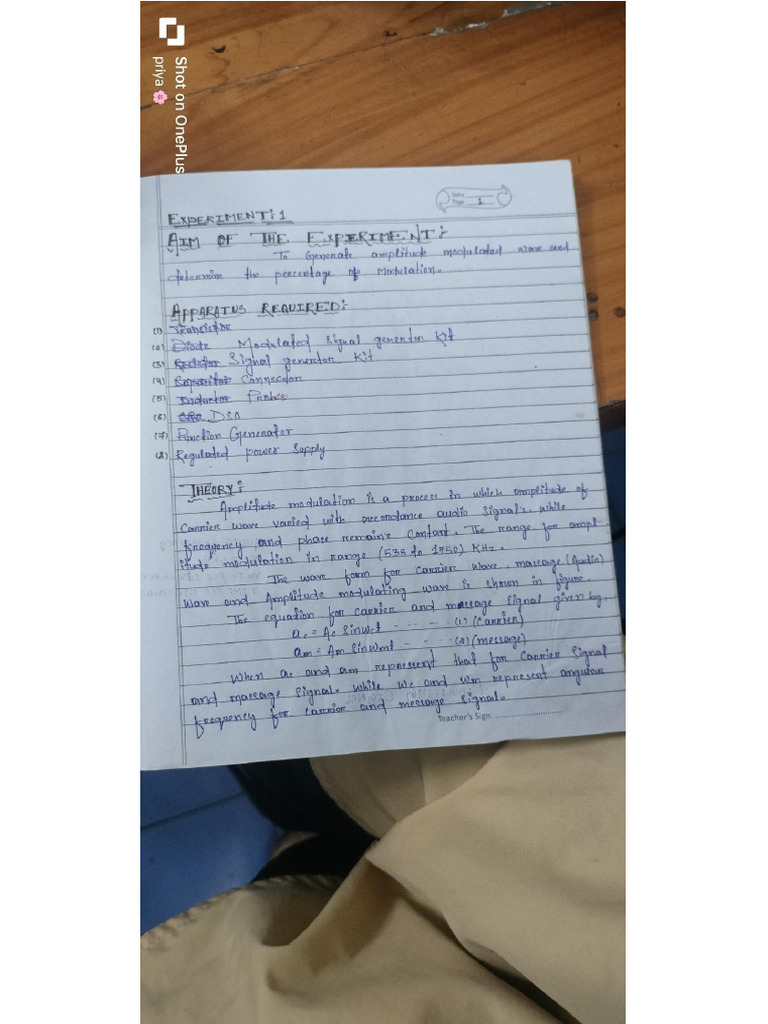 Shot on OnePlus
priya🌸
Date
Page 1
EXPERIMENT: 1
AIM OF THE EXPERIMENT:
To Generate amplitude modulated wave and
determine the percentage of Modulation.
APPARATUS REQUIRED:
(1) Transistor
(2) Diode Modulated signal generator kit
(3) Resistor Signal generator Kit
(4) Capacitor Connector
(5) Inductor Probes
(6) CRO DSO
(7) Function Generator
(8) Regulated power supply
THEORY:
Amplitude modulation is a process in which amplitude of
carrier wave varied with accordance audio signal. while
frequency and phase remains contant. The range for ampl-
itude modulation in range (535 to 1750) KHz.
The wave form for carrier wave, massage (Audio)
wave and Amplitude modulating wave is shown in figure.
The equation for carrier and message signal given by,
ac = Ac Sinwct ---- (1) (Carrier)
am = Am Sinwmt ---- (2) (message)
When ac and am represent that for Carrier Signal
and massage signal. while wc and wm represent angular
frequency for carrier and message signal.
Teacher's Sign